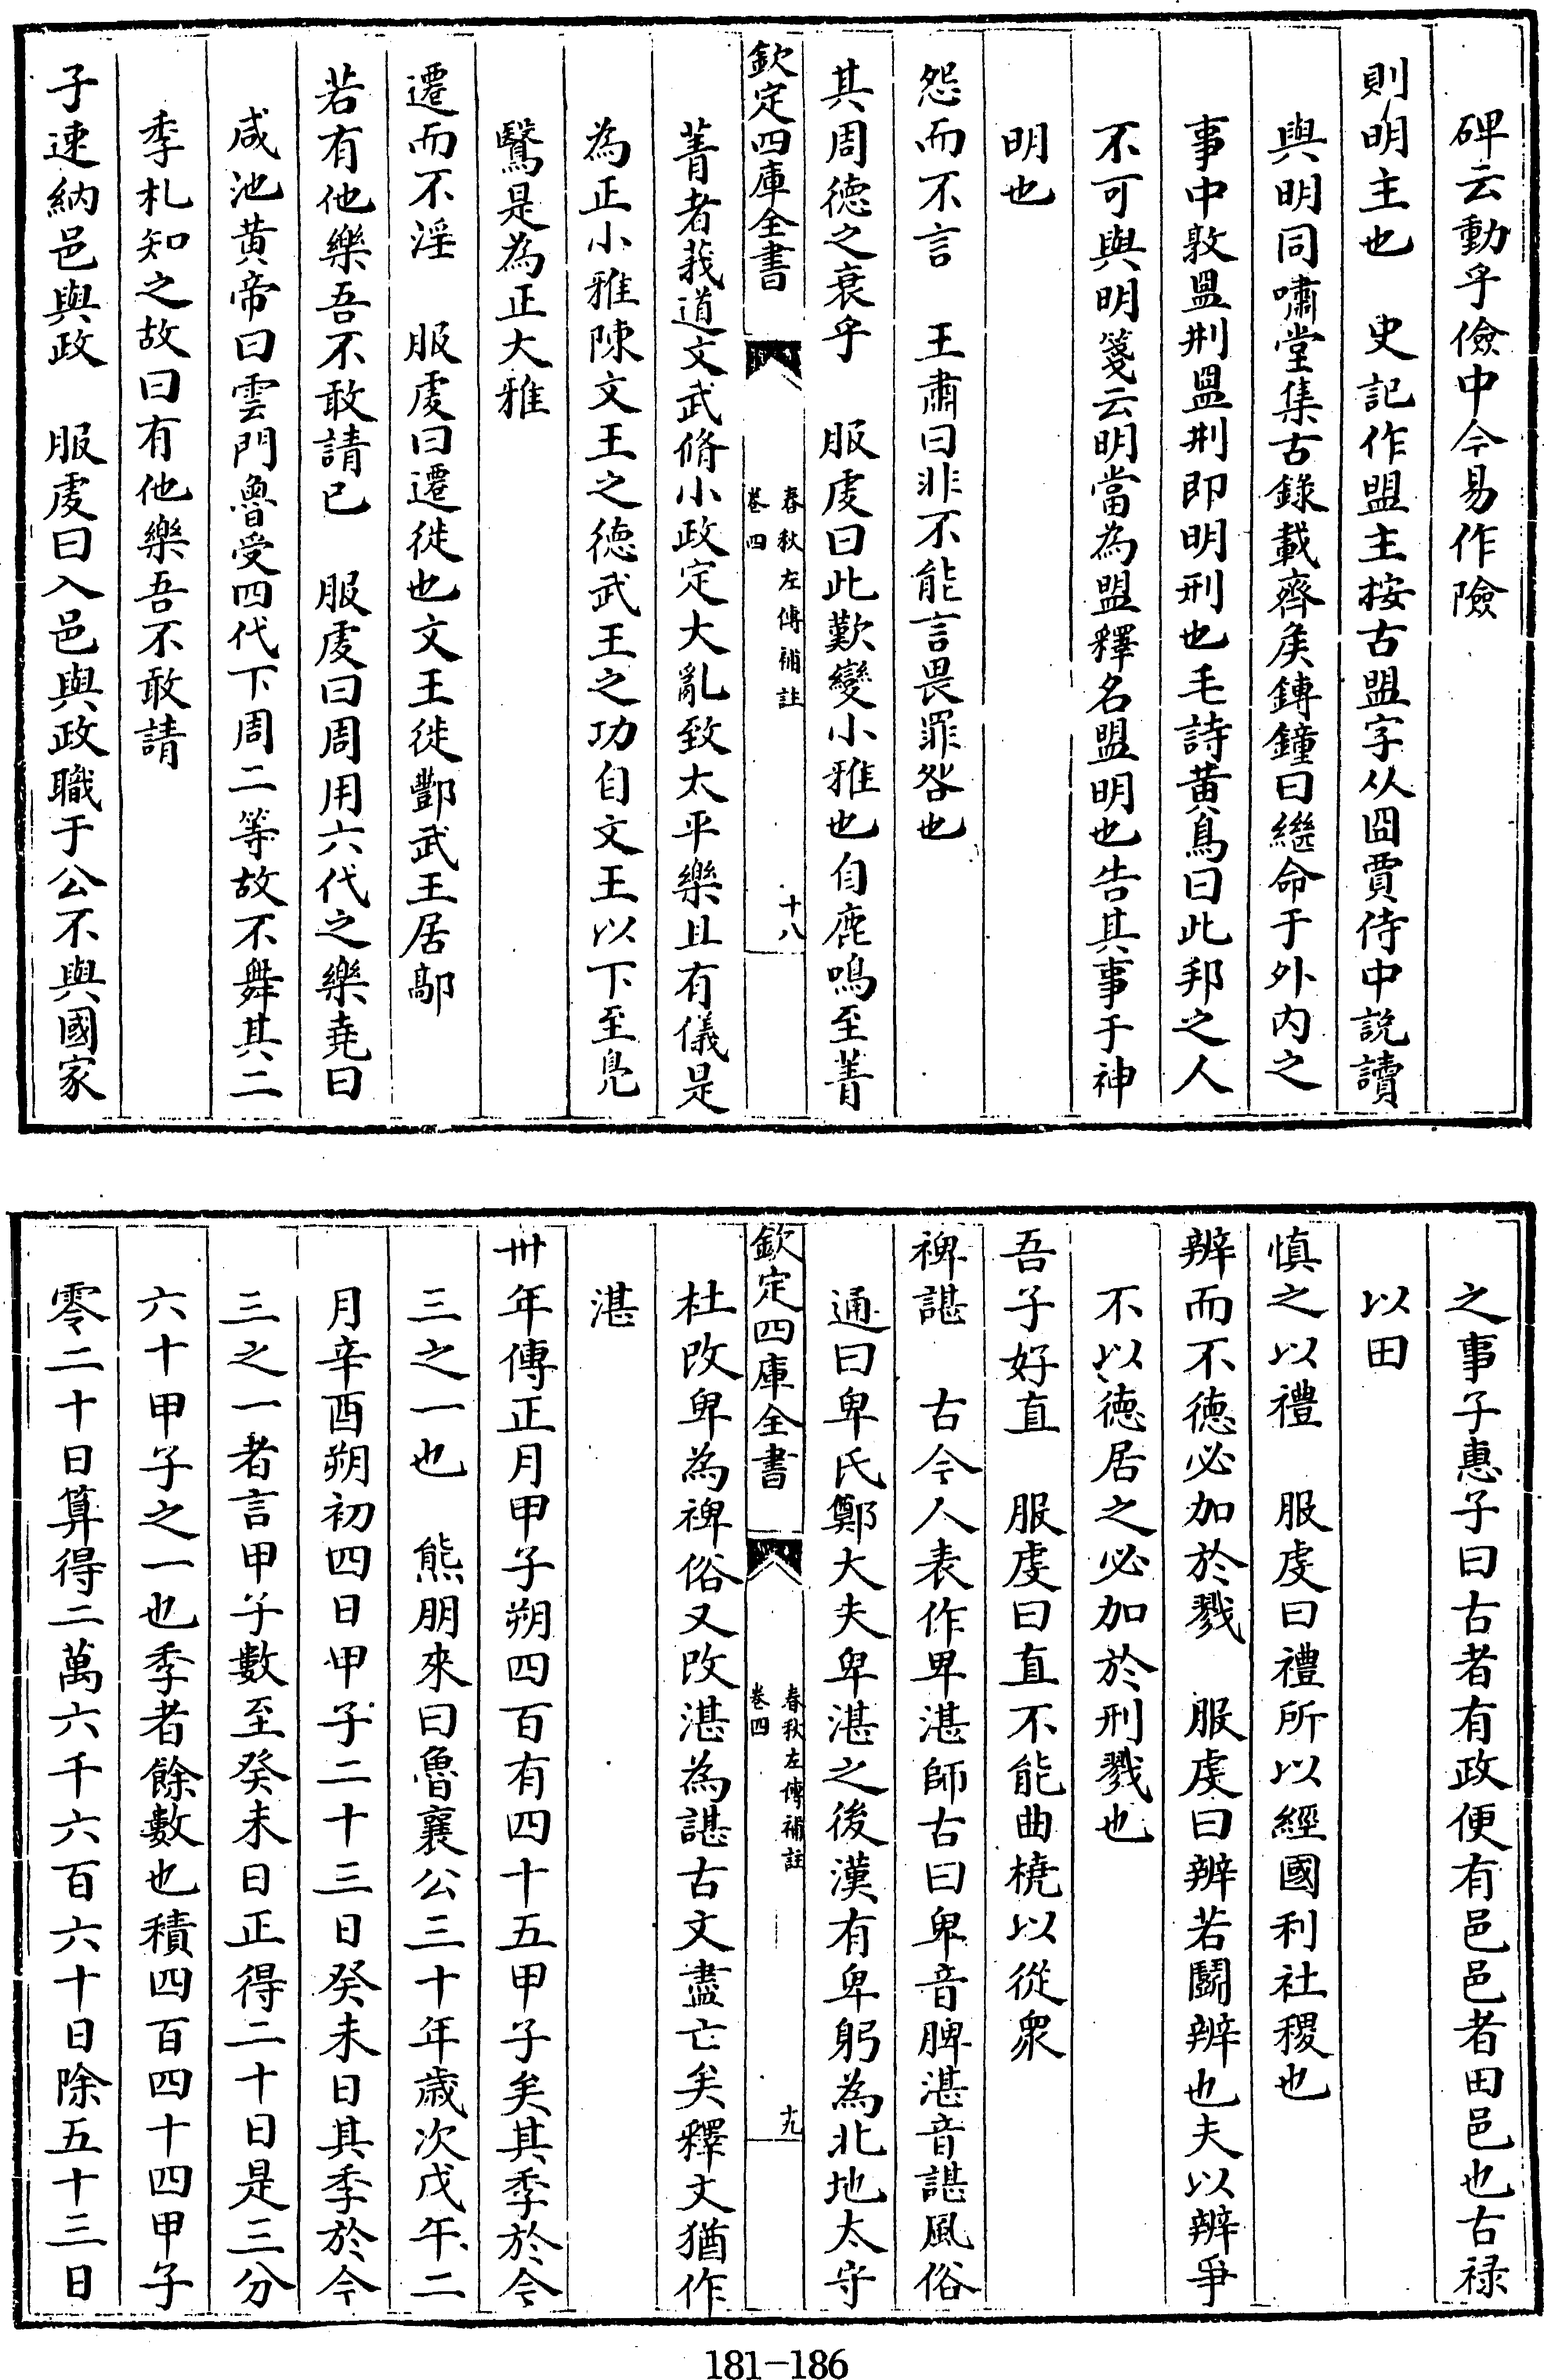 碑云動乎儉中今易作險
則明主也　史記作盟主按古盟字从囧賈侍中説讀
與明同嘯堂集古錄載齊矦鎛鐘曰繼命于外内之
事中敦盟荆盟荆即明刑也毛詩黄鳥曰此邦之人
不可與明箋云明當為盟釋名盟明也告其事于神
明也
怨而不言　王肅曰非不能言畏罪咎也
其周徳之衰乎　服虔曰此歎變小雅也自鹿鳴至菁
欽定四庫全書
春秋左傳補註
卷四
十八
菁者莪道文武脩小政定大亂致太平樂且有儀是
為正小雅陳文王之徳武王之功自文王以下至鳬
鷖是為正大雅
遷而不淫　服虔曰遷徙也文王徙酆武王居鄗
若有他樂吾不敢請已　服虔曰周用六代之樂堯曰
咸池黄帝曰雲門魯受四代下周二等故不舞其二
季札知之故曰有他樂吾不敢請
子速納邑與政　服虔曰入邑與政職于公不與國家
之事子惠子曰古者有政便有邑邑者田邑也古禄
以田
慎之以禮　服虔曰禮所以經國利社稷也
辨而不徳必加於戮　服虔曰辨若鬭辨也夫以辨爭
不以徳居之必加於刑戮也
吾子好直　服虔曰直不能曲橈以從衆
裨諶　古今人表作卑湛師古曰卑音脾湛音諶風俗
通曰卑氏鄭大夫卑湛之後漢有卑躬為北地太守
欽定四庫全書
春秋左傳補註
卷四
十九
杜改卑為裨俗又改湛為諶古文盡亡矣釋文猶作
湛
卅年傳正月甲子朔四百有四十五甲子矣其季於今
三之一也　熊朋來曰魯襄公三十年歳次戊午二
月辛酉朔初四日甲子二十三日癸未日其季於今
三之一者言甲子數至癸未日正得二十日是三分
六十甲子之一也季者餘數也積四百四十四甲子
零二十日算得二萬六千六百六十日除五十三日
181-186